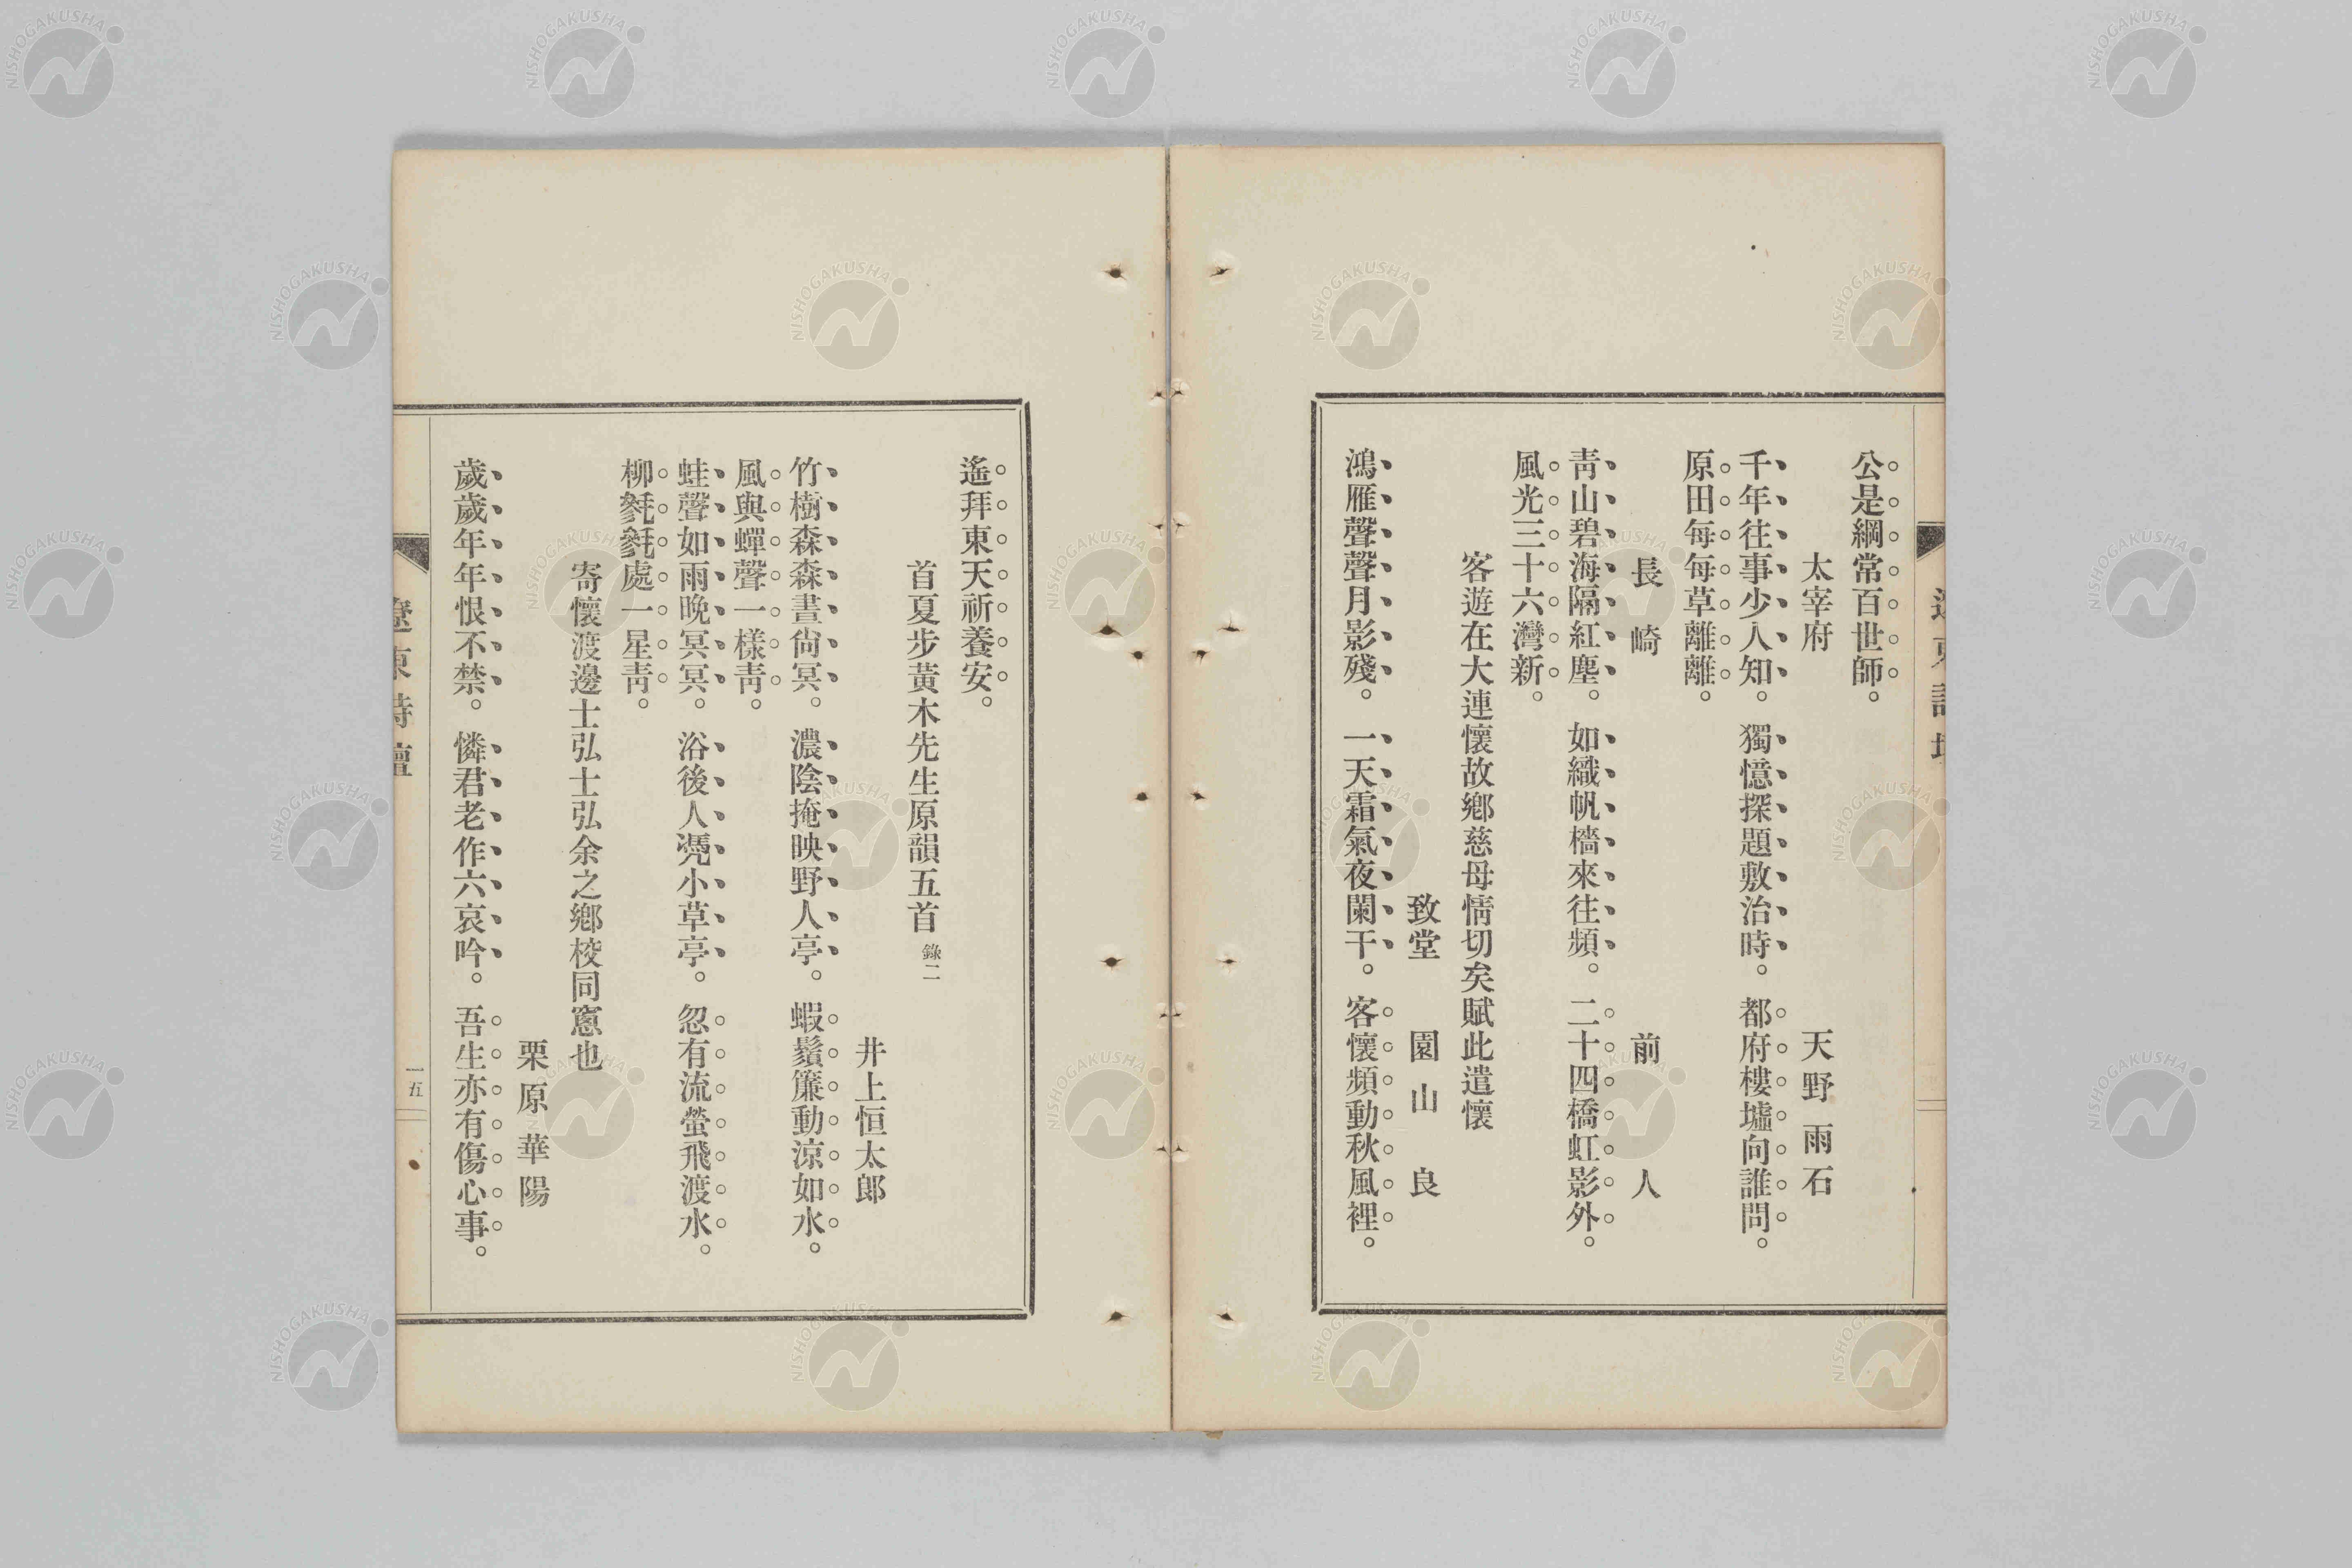 公是綱常百世師。
太宰府　天野雨石
千年往事少人知。獨憶探題敷治時。都府樓墟向誰問。
原田每每草離離。
長崎　前人
靑山碧海隔紅塵。如織帆檣來往頻。二十四橋虹影外。
風光三十六灣新。
客遊在大連懷故鄕慈母情切矣賦此遣懷
致堂　園山良
鴻雁聲聲月影殘。一天霜氣夜闌干。客懷頻動秋風裡。
遙拜東天祈養安。
首夏步黃木先生原韻五首 錄二
井上恒太郞
竹樹森森晝尙冥。濃陰掩映野人亭。蝦鬚簾動涼如水。
風與蟬聲一樣靑。
蛙聲如雨晚冥冥。浴後人凴小草亭。忽有流螢飛渡水。
柳毿毿處一星靑。
寄懷渡邊士弘士弘余之鄕校同窓也
栗原華陽
歲歲年年恨不禁。憐君老作六哀吟。吾生亦有傷心事。
遼東詩壇
一五
NISHOGAKUSHA